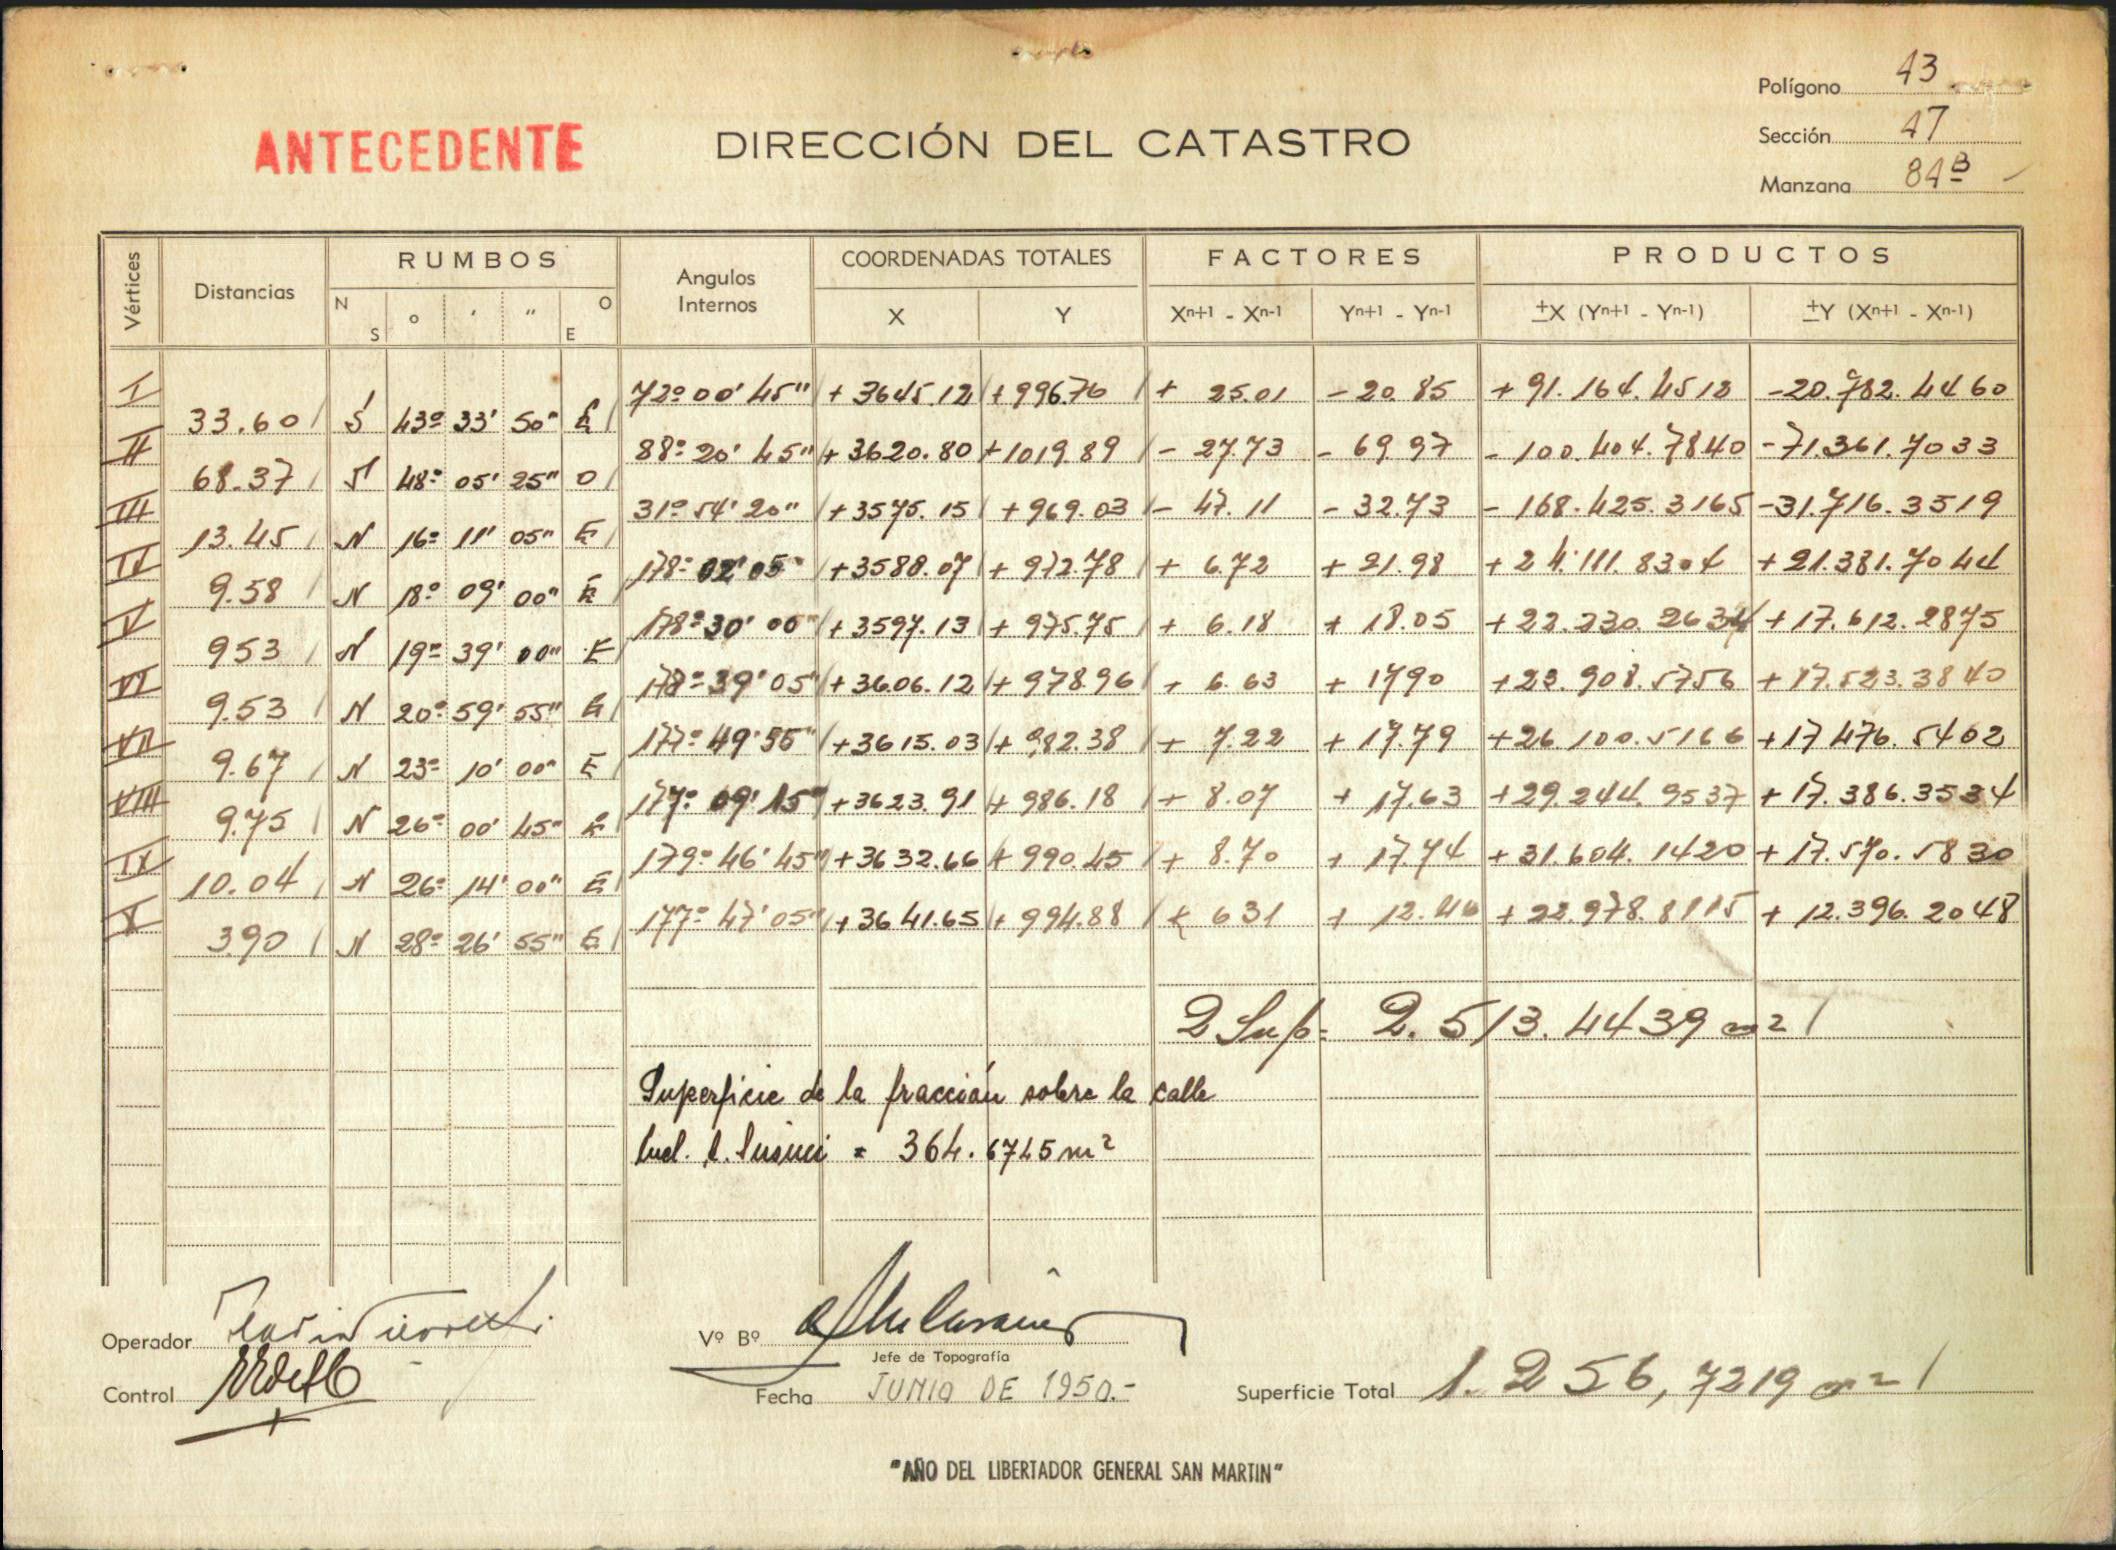 Polígono 43
ANTECEDENTE DIRECCIÓN DEL CATASTRO
Sección 47
Manzana 84B
Vértices Distancias RUMBOS Angulos Internos COORDENADAS TOTALES FACTORES PRODUCTOS
N S o ' " O E X Y Xn+1 - Xn-1 Yn+1 - Yn-1 ±X (Yn+1 - Yn-1) ±Y (Xn+1 - Xn-1)
I 72º00'45" +3645.12 +996.76 + 25.01 - 20.85 +91.164.4512 -20.782.4460
33.60 S 43º 33' 50" E
II 88º20'45" +3620.80 +1019.89 - 27.73 - 69.97 -100.404.7840 -71.361.7033
68.37 S 48º 05' 25" O
III 31º54'20" +3575.15 +969.03 - 47.11 - 32.73 -168.425.3165 -31.716.3519
13.45 N 16º 11' 05" E
IV 178º02'05" +3588.07 +972.78 + 6.72 + 21.98 +24.111.8304 +21.381.7044
9.58 N 18º 09' 00" E
V 178º30'00" +3597.13 +975.75 + 6.18 + 18.05 +22.230.2634 +17.612.2875
9.53 N 19º 39' 00" E
VI 178º39'05" +3606.12 +978.96 + 6.63 + 17.90 +23.908.5756 +17.523.3840
9.53 N 20º 59' 55" E
VII 177º49'55" +3615.03 +982.38 + 7.22 + 17.79 +26.100.5166 +17.476.5402
9.67 N 23º 10' 00" E
VIII 177º09'15" +3623.91 +986.18 + 8.07 + 17.63 +29.244.9537 +17.386.3534
9.75 N 26º 00' 45" E
IX 179º46'45" +3632.66 +990.45 + 8.70 + 17.74 +31.604.1420 +17.570.5830
10.04 N 26º 14' 00" E
X 177º47'05" +3641.65 +994.88 + 6.31 + 12.46 +22.978.8115 +12.396.2048
3.90 N 28º 26' 55" E
2 Sup= 2.513.4439 m2
Superficie de la fracción sobre la calle
= 364.6745 m2
Operador Vº Bº
Jefe de Topografía
Control Fecha JUNIO DE 1950.- Superficie Total 1.256,7219 m2
"AÑO DEL LIBERTADOR GENERAL SAN MARTIN"